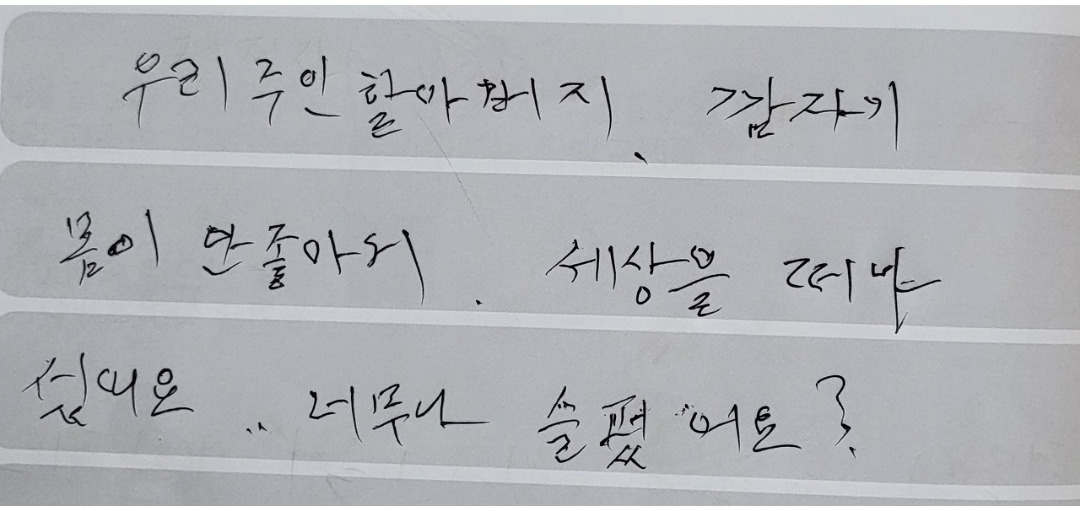 우리 주인 할아버지, 갑자기
몸이 안좋아서, 세상을 떠나
섰대요.. 너무나 슬펐어요?